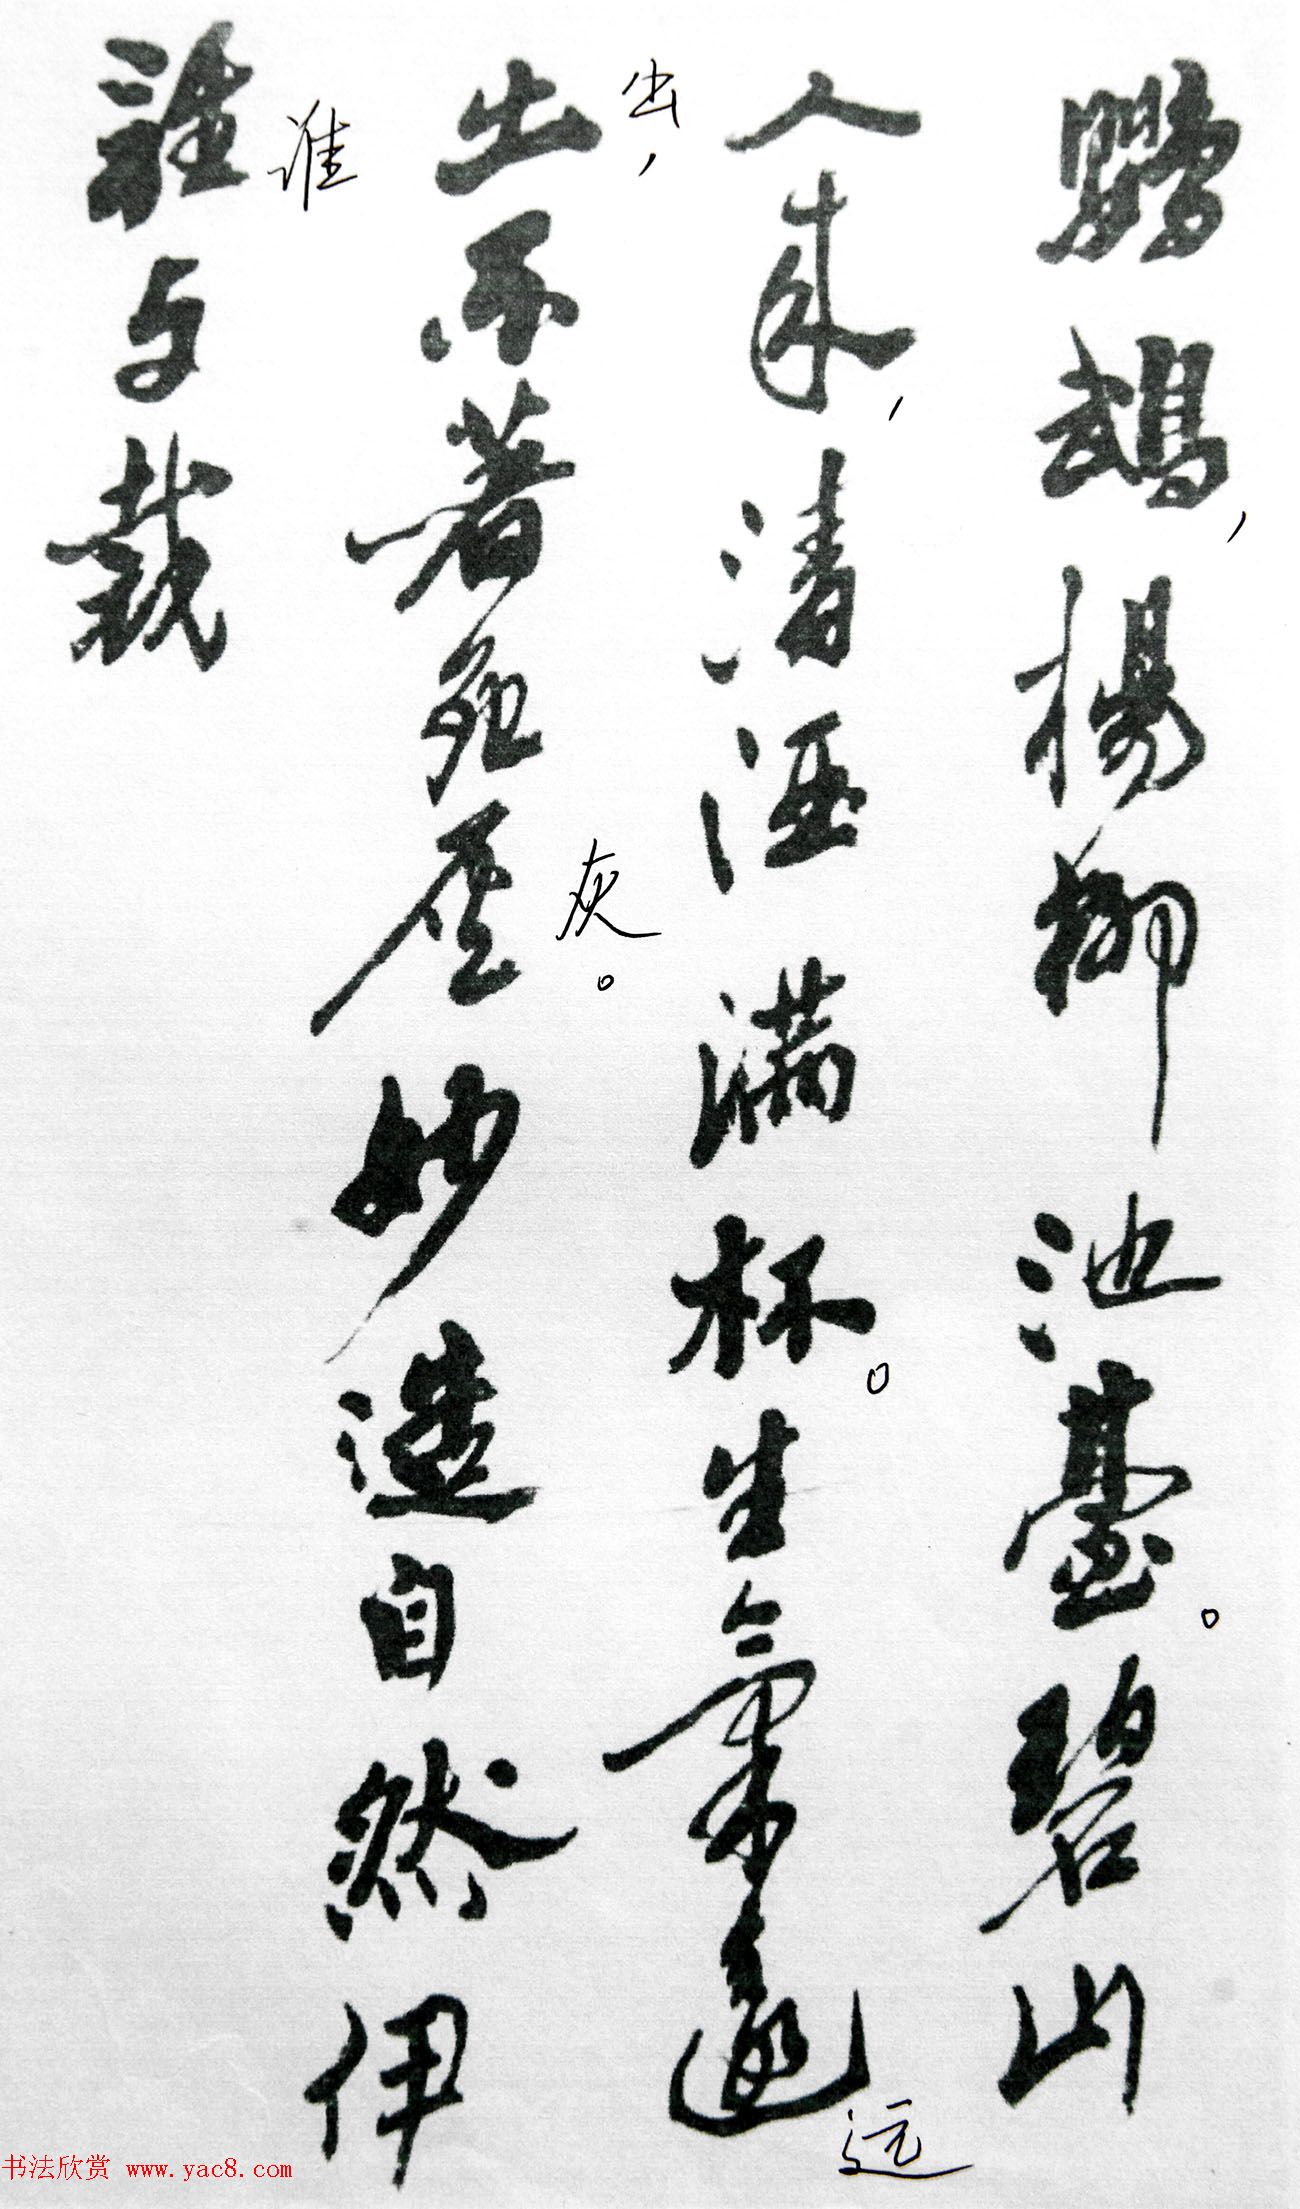 鸚鵡，楊柳池臺。碧山
人来，清酒滿杯。生氣遠
远
出，
出不著死灰妙造自然伊
灰。
谁
誰与裁
书法欣赏 www.yac8.com